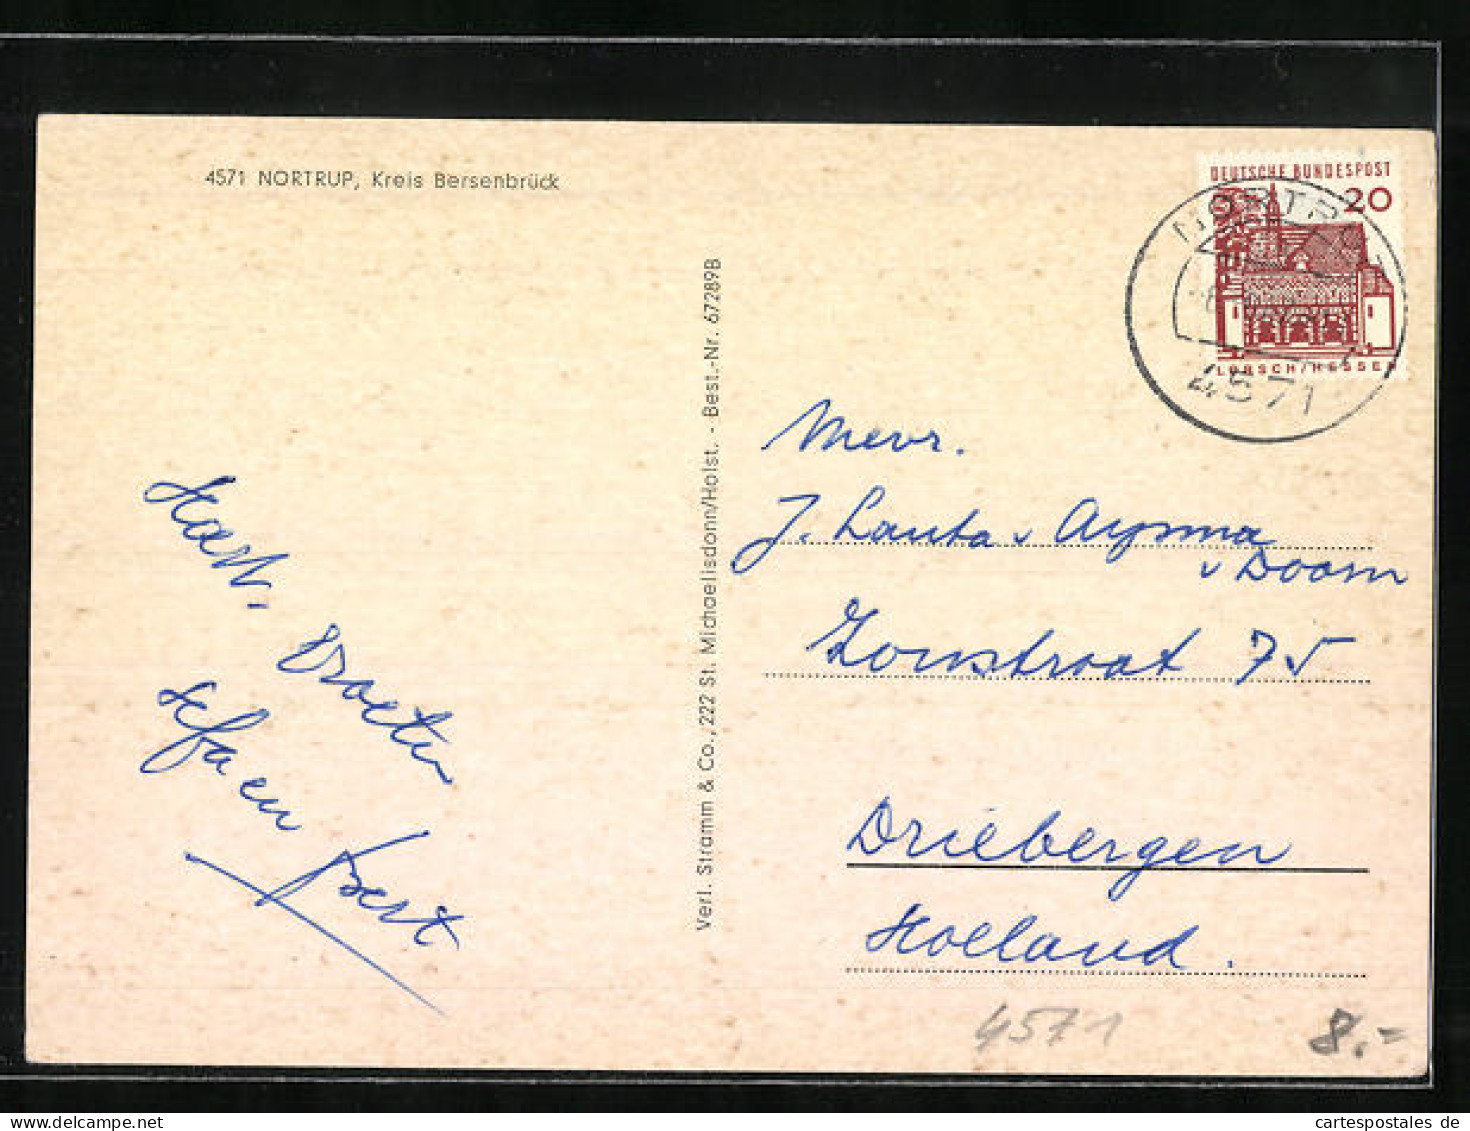 4571 NORTRUP, Kreis Bersenbrück
DEUTSCHE BUNDESPOST
20
NORTRUP
LORSCH/HESSEN
4571
Verl. Stramm & Co., 222 St. Michaelisdonn/Holst. - Best.-Nr. 67289B
Mevr.
J. Lauta v Aysma
v Doorn
Zonstraat 75
Driebergen
Holland.
Hart. Groeten
en Bert
4571
8.-
cartespostales de